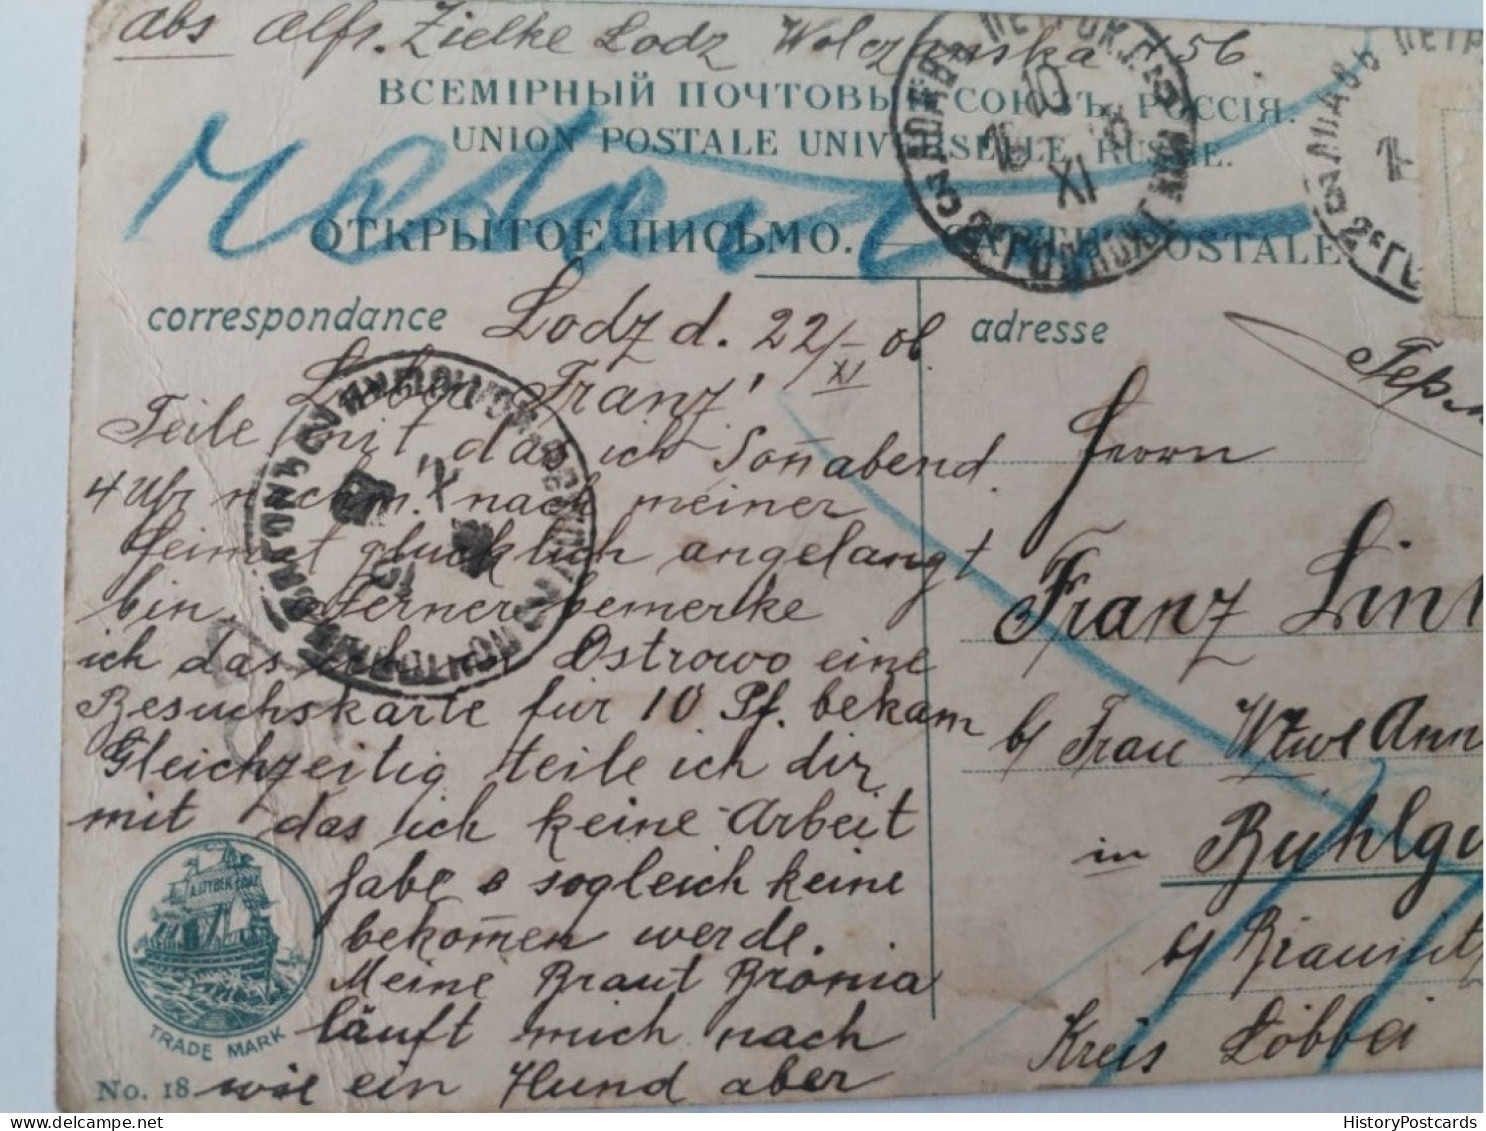 abs Alfr. Zielke Lodz Wolczanska 156
ВСЕМІРНЫЙ ПОЧТОВЫЙ СОЮЗЪ. РОССІЯ.
UNION POSTALE UNIVERSELLE. RUSSIE.
Retour
ОТКРЫТОЕ ПИСЬМО. — CARTE POSTALE
correspondance
Lodz d. 22/XI 06
Lieber Franz!
Teile mit das ich Soñabend
4 Uhr nachm. nach meiner
Heimat glücklich angelangt
bin. Ferner bemerke
ich das in Ostrowo eine
Besuchskarte für 10 Pf. bekam
Gleichzeitig teile ich dir
mit das ich keine Arbeit
habe sogleich keine
bekom̄en werde.
Meine Braut Bronia
läuft mich nach
wie ein Hund aber
adresse
Herrn
Franz Lint
b/ Frau Wtwe Ann
in Bühlgu
b/ Braunitz
Kreis Löbbei
TRADE MARK
No. 18
10
XI
HistoryPostcards.com